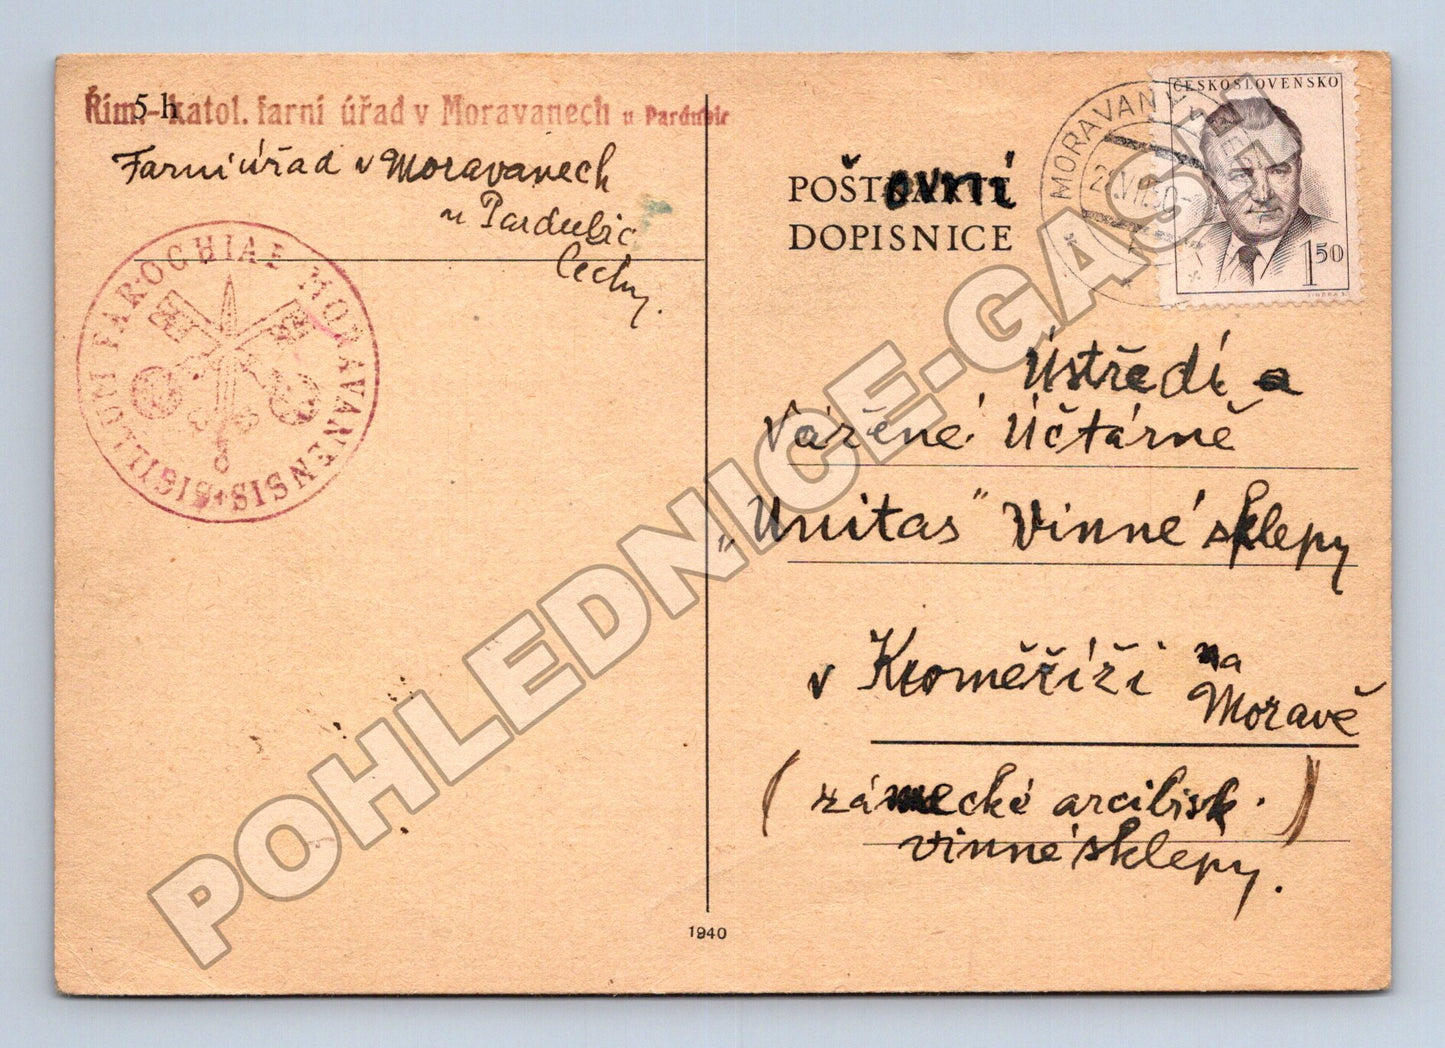 Řím.-katol. farní úřad v Moravanech u Pardubic
5 h
Farní úřad v Moravanech
u Pardubic
Čechy.
SIGILLUM PAROCHIAE MORAVANENSIS
POŠTOVNÍ
DOPISNICE
MORAVANY
ČESKOSLOVENSKO
1 50
Ústředí a
Vážené Účtárně
„Unitas" Vinné sklepy
v Kroměříži na
Moravě
(zámecké arcibisk.)
vinné sklepy.
1940
POHLEDNICE-GASI